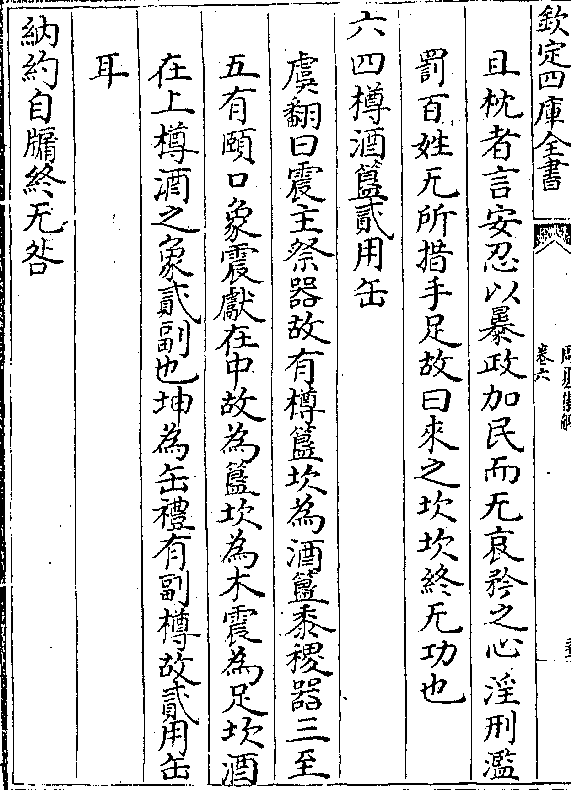 欽定四庫全書
卷六
且枕者言安忍以暴政加民而无哀矜之心淫刑濫
罰百姓无所措手足故曰來之坎坎終无功也
六四樽酒簋貳用缶
虞翻曰震主祭器故有樽簋坎為酒簋黍稷器三至
五有頤口象震獻在中故為簋坎為木震為足坎酒
在上樽酒之象貳副也坤為缶禮有副樽故貳用缶
耳
納約自牖終无咎